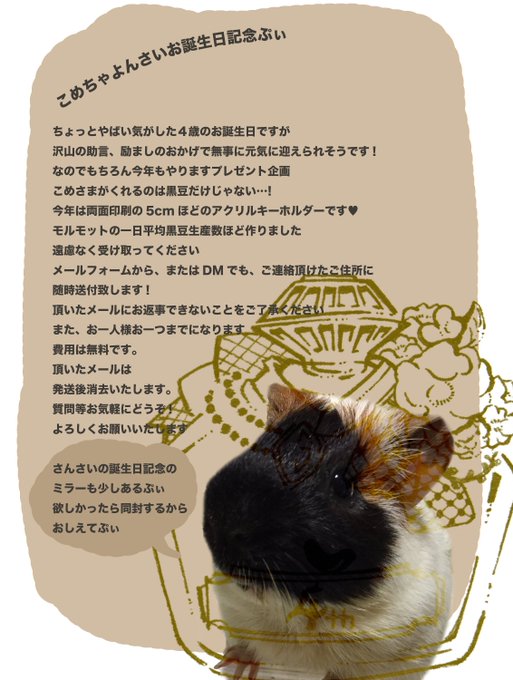 こめちゃよんさいお誕生日記念ぷぃ
ちょっとやばい気がした4歳のお誕生日ですが
沢山の助言、励ましのおかげで無事に元気に迎えられそうです！
なのでもちろん今年もやりますプレゼント企画
こめさまがくれるのは黒豆だけじゃない…!
今年は両面印刷の5cmほどのアクリルキーホルダーです♥
モルモットの一日平均黒豆生産数ほど作りました
遠慮なく受け取ってください
メールフォームから、またはDMでも、ご連絡頂けたご住所に
随時送付致します！
頂いたメールにお返事できないことをご了承ください
また、お一人様お一つまでになります
費用は無料です。
頂いたメールは
発送後消去いたします。
質問等お気軽にどうぞ！
よろしくお願いいたします
さんさいの誕生日記念の
ミラーも少しあるぷぃ
欲しかったら同封するから
おしえてぷぃ
4th